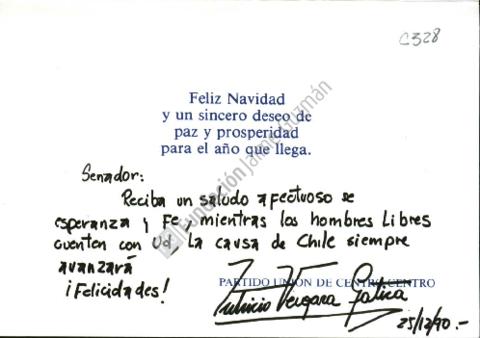 C328
Feliz Navidad
y un sincero deseo de
paz y prosperidad
para el año que llega.
Fundación Jaime Guzmán
Senador:
Reciba un saludo afectuoso de
esperanza y Fe, mientras los hombres Libres
cuenten con Ud, La causa de Chile siempre
avanzará
¡Felicidades!
PARTIDO UNION DE CENTRO CENTRO
Patricio Vergara Gatica
25/12/90.-